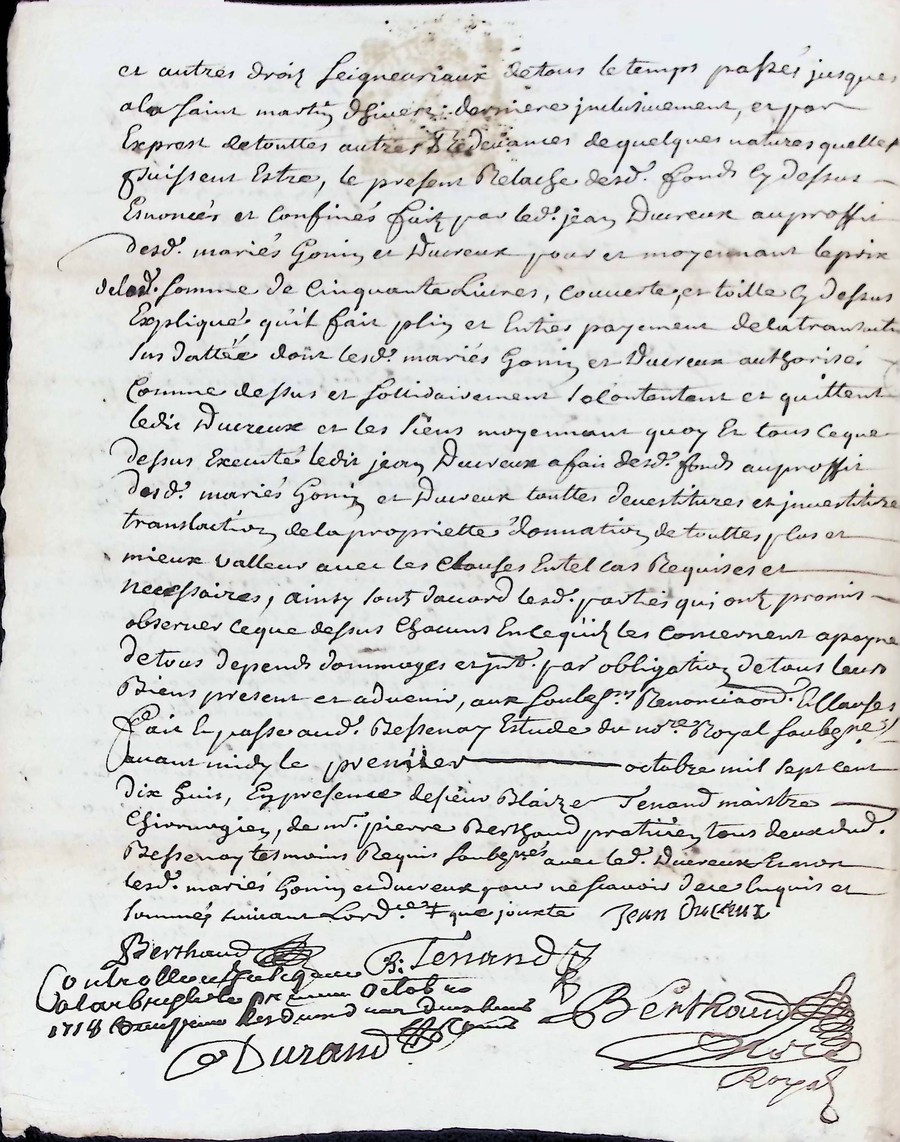 et autres droiz seigneuriaux de tous le temps passés jusques
a la saint martin dhiver derniere jnclusivement, et par
Exprest de touttes autres Redevances de quelques natures quelles
puissent Estre, le present Relache desd. fonds cy dessus
Enoncés et Confinés fait par led. jean Ducreux au proffit
desd. mariés Gonin et Ducreux pour et moyennant le prix
de lad. somme de Cinquante Livres, couverte, et toille cy dessus
Expliqué qu'il fait plin et Entier payement de la transaction
sus dattée dont lesd. mariés Gonin et Ducreux authorisés
comme dessus et sollidairement se contentent et quittent
ledit Ducreux et les siens moyennant quoy Et tous ce que
dessus Executé ledit jean Ducreux a fait desd. fonds au proffit
desd. mariés Gonin et Ducreux touttes devestitures et jnvestitures
translaction de la propriette donnation de touttes plus et
mieux valleur avec les Clauses En tel cas Requises et
necessaires, ainsy sont d'accord lesd. parties qui ont promis
observer ce que dessus Chacuns En ce qu'il les concernent a payne
de tous depends dommages et jnt. par obligation de tous leurs
Biens present et advenir, aux soubmons Renonciaons. & Clauses
fait & passe aud. Bessenay Estude du nore Royal soubsigné
avant midy le premier octobre mil sept cent
dix huit, En presence de sieur Blaize Tenand maistre
Chirurgien, de mr. pierre Berthaud praticien tous deux dud.
Bessenay tesmoins Requis soubsignés avec led. Ducreux Et non
lesd. mariés Gonin et ducreux pour ne scavoir de ce Enquis et
sommés suivant Lordce ‡ que jouxte Jean Ducreux
Berthaud B. Tenand
Controlleur
a Larbresle le premier Octobre
1718
Berthaud
Durand
Nore
Royal